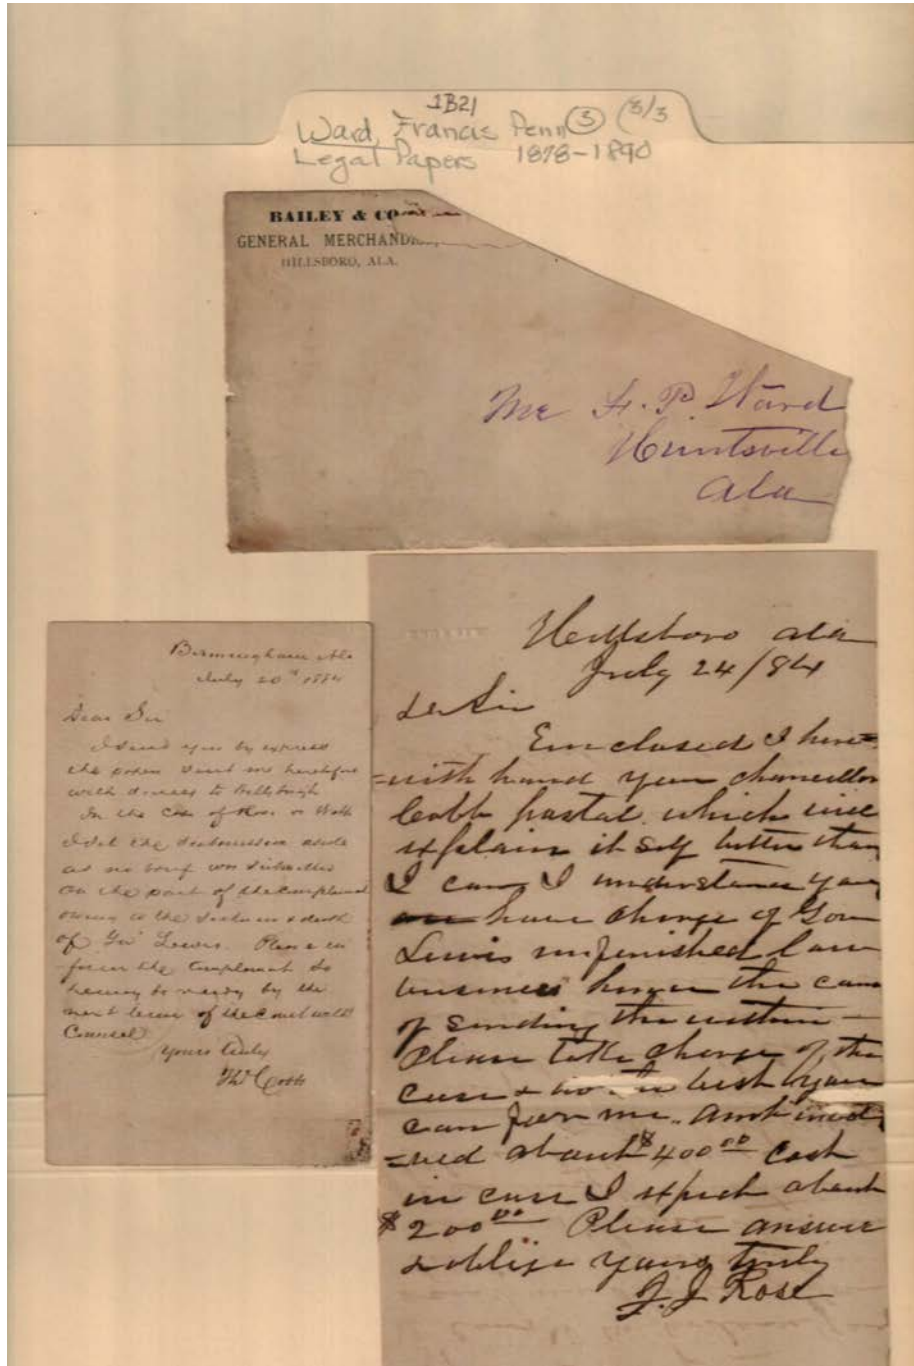 1B21
Ward, Francis Penn ③ (3/3
Legal Papers 1878-1890
BAILEY & CO
GENERAL MERCHANDISE,
HILLSBORO, ALA.
Mr F. P. Ward
Huntsville
Ala
Birmingham Ala
July 20th 1884
Dear Sir
I send you by express
the papers sent me heretofore
with
In the Case of Rose vs
I set the submission aside
as no brief was submitted
on the part of the Complainant
owing to the sickness & death
of Gov Lewis. Please in
form the Complainant to
be ready by the
next term of the Court with
Counsel
Yours truly
Thos Cobb
Hillsboro Ala
July 24/84
Dr Sir
Enclosed I here=
=with hand you chancellor
Cobb postal which will
explain it self better than
I can, I understand you
have charge of Gov
Lewis unfinished law
business hence the cause
of sending the within —
Please take charge of the
case & do the best you
can for me. Amt invol
=ved about $400.00 Cost
in case I expect about
$200.00 Please answer
& oblige yours truly
F. J. Rose